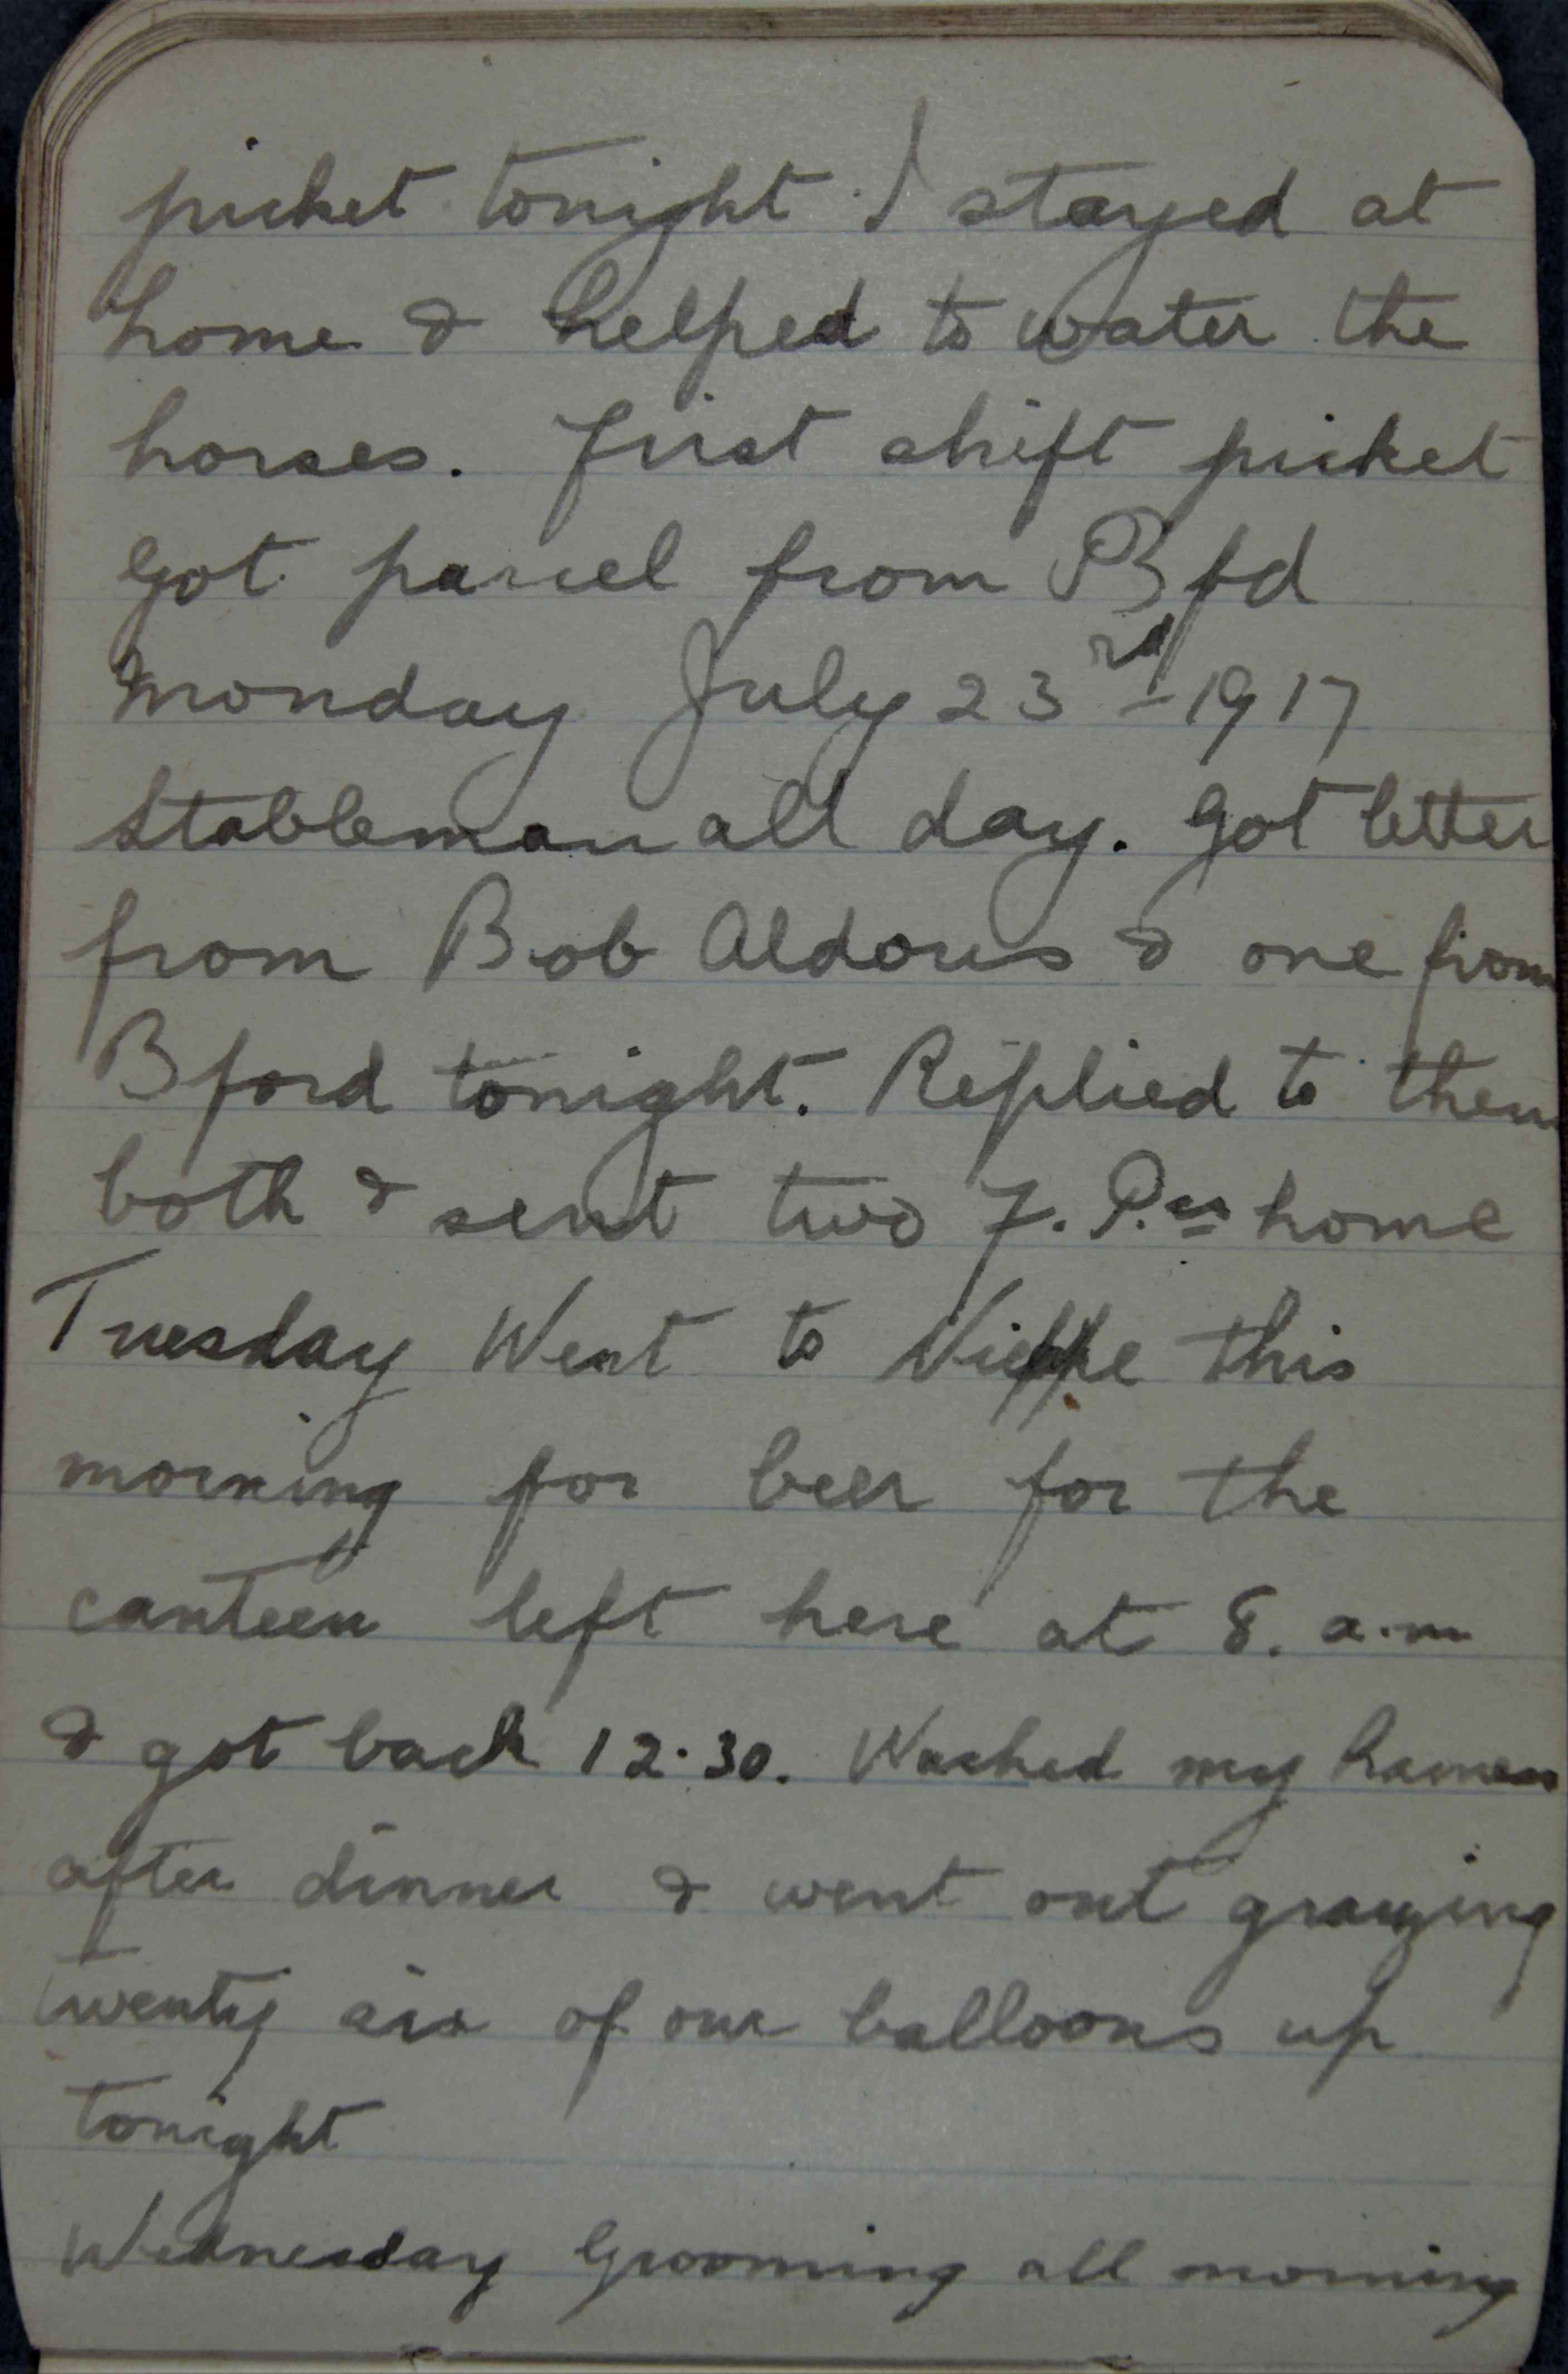 picket tonight. I stayed at
home & helped to water the
horses. First shift picket
Got parcel from Bfd
Monday July 23rd - 1917
Stableman all day. Got letter
from Bob Aldous & one from
Bford tonight. Replied to them
both & sent two F. P.cs home
Tuesday Went to Nieppe this
morning for beer for the
canteen left here at 8. a.m
& got back 12.30. Washed my harness
after dinner & went out grazing
twenty six of our balloons up
tonight
Wednesday Grooming all morning